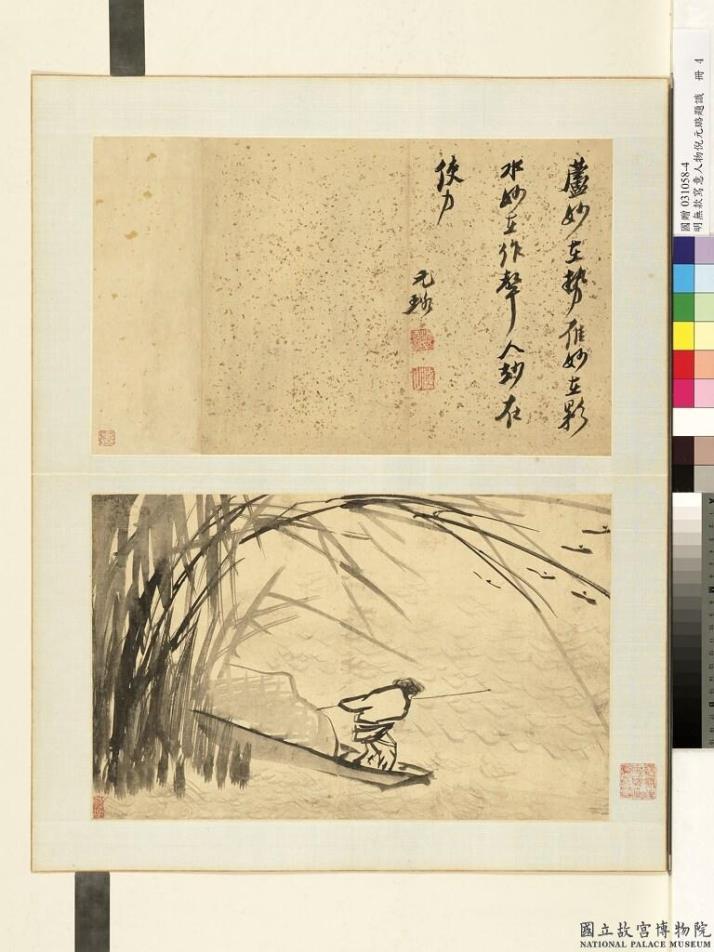 蘆妙在勢雁妙在影
水妙在作聲人妙在
使力
元璐
國贈 031058-4
明無款寫意人物倪元璐題識 冊 4
國立故宮博物院
NATIONAL PALACE MUSEUM